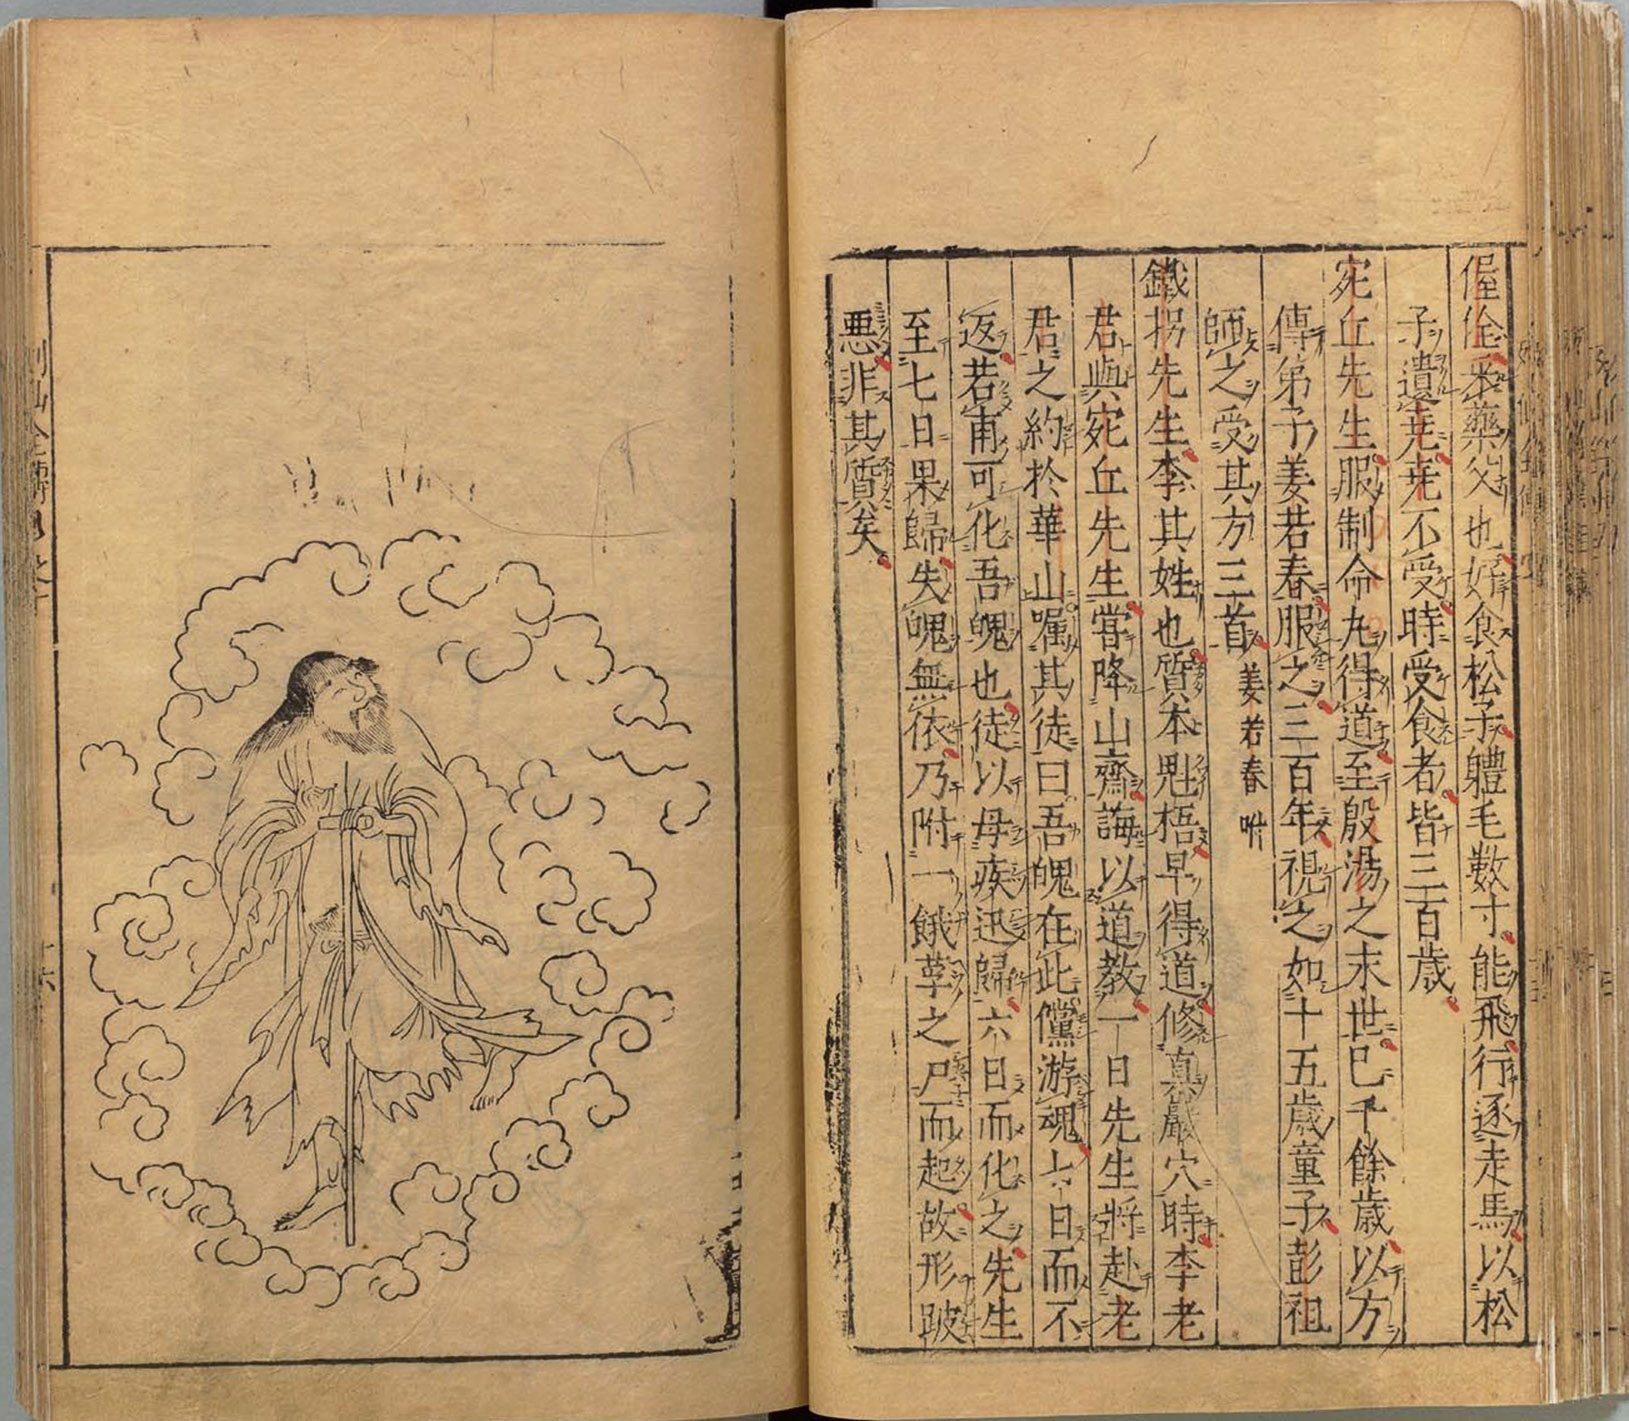 偓佺采藥父也好食松子體毛數寸能飛行逐走馬以松
子遺堯堯不受時受食者皆三百歲
宛丘先生服制命丸得道至殷湯之末世已千餘歲以方
傳弟子姜若春服之三百年視之如十五歲童子彭祖
師之受其方三首 姜若春附
鐵拐先生李其姓也質本魁梧早得道修真巖穴時李老
君與宛丘先生嘗降山齋誨以道教一日先生將赴老
君之約於華山囑其徒曰吾魄在此儻游魂七日而不
返若甫可化吾魄也徒以母疾迅歸六日而化之先生
至七日果歸失魄無依乃附一餓莩之尸而起故形跛
惡非其質矣